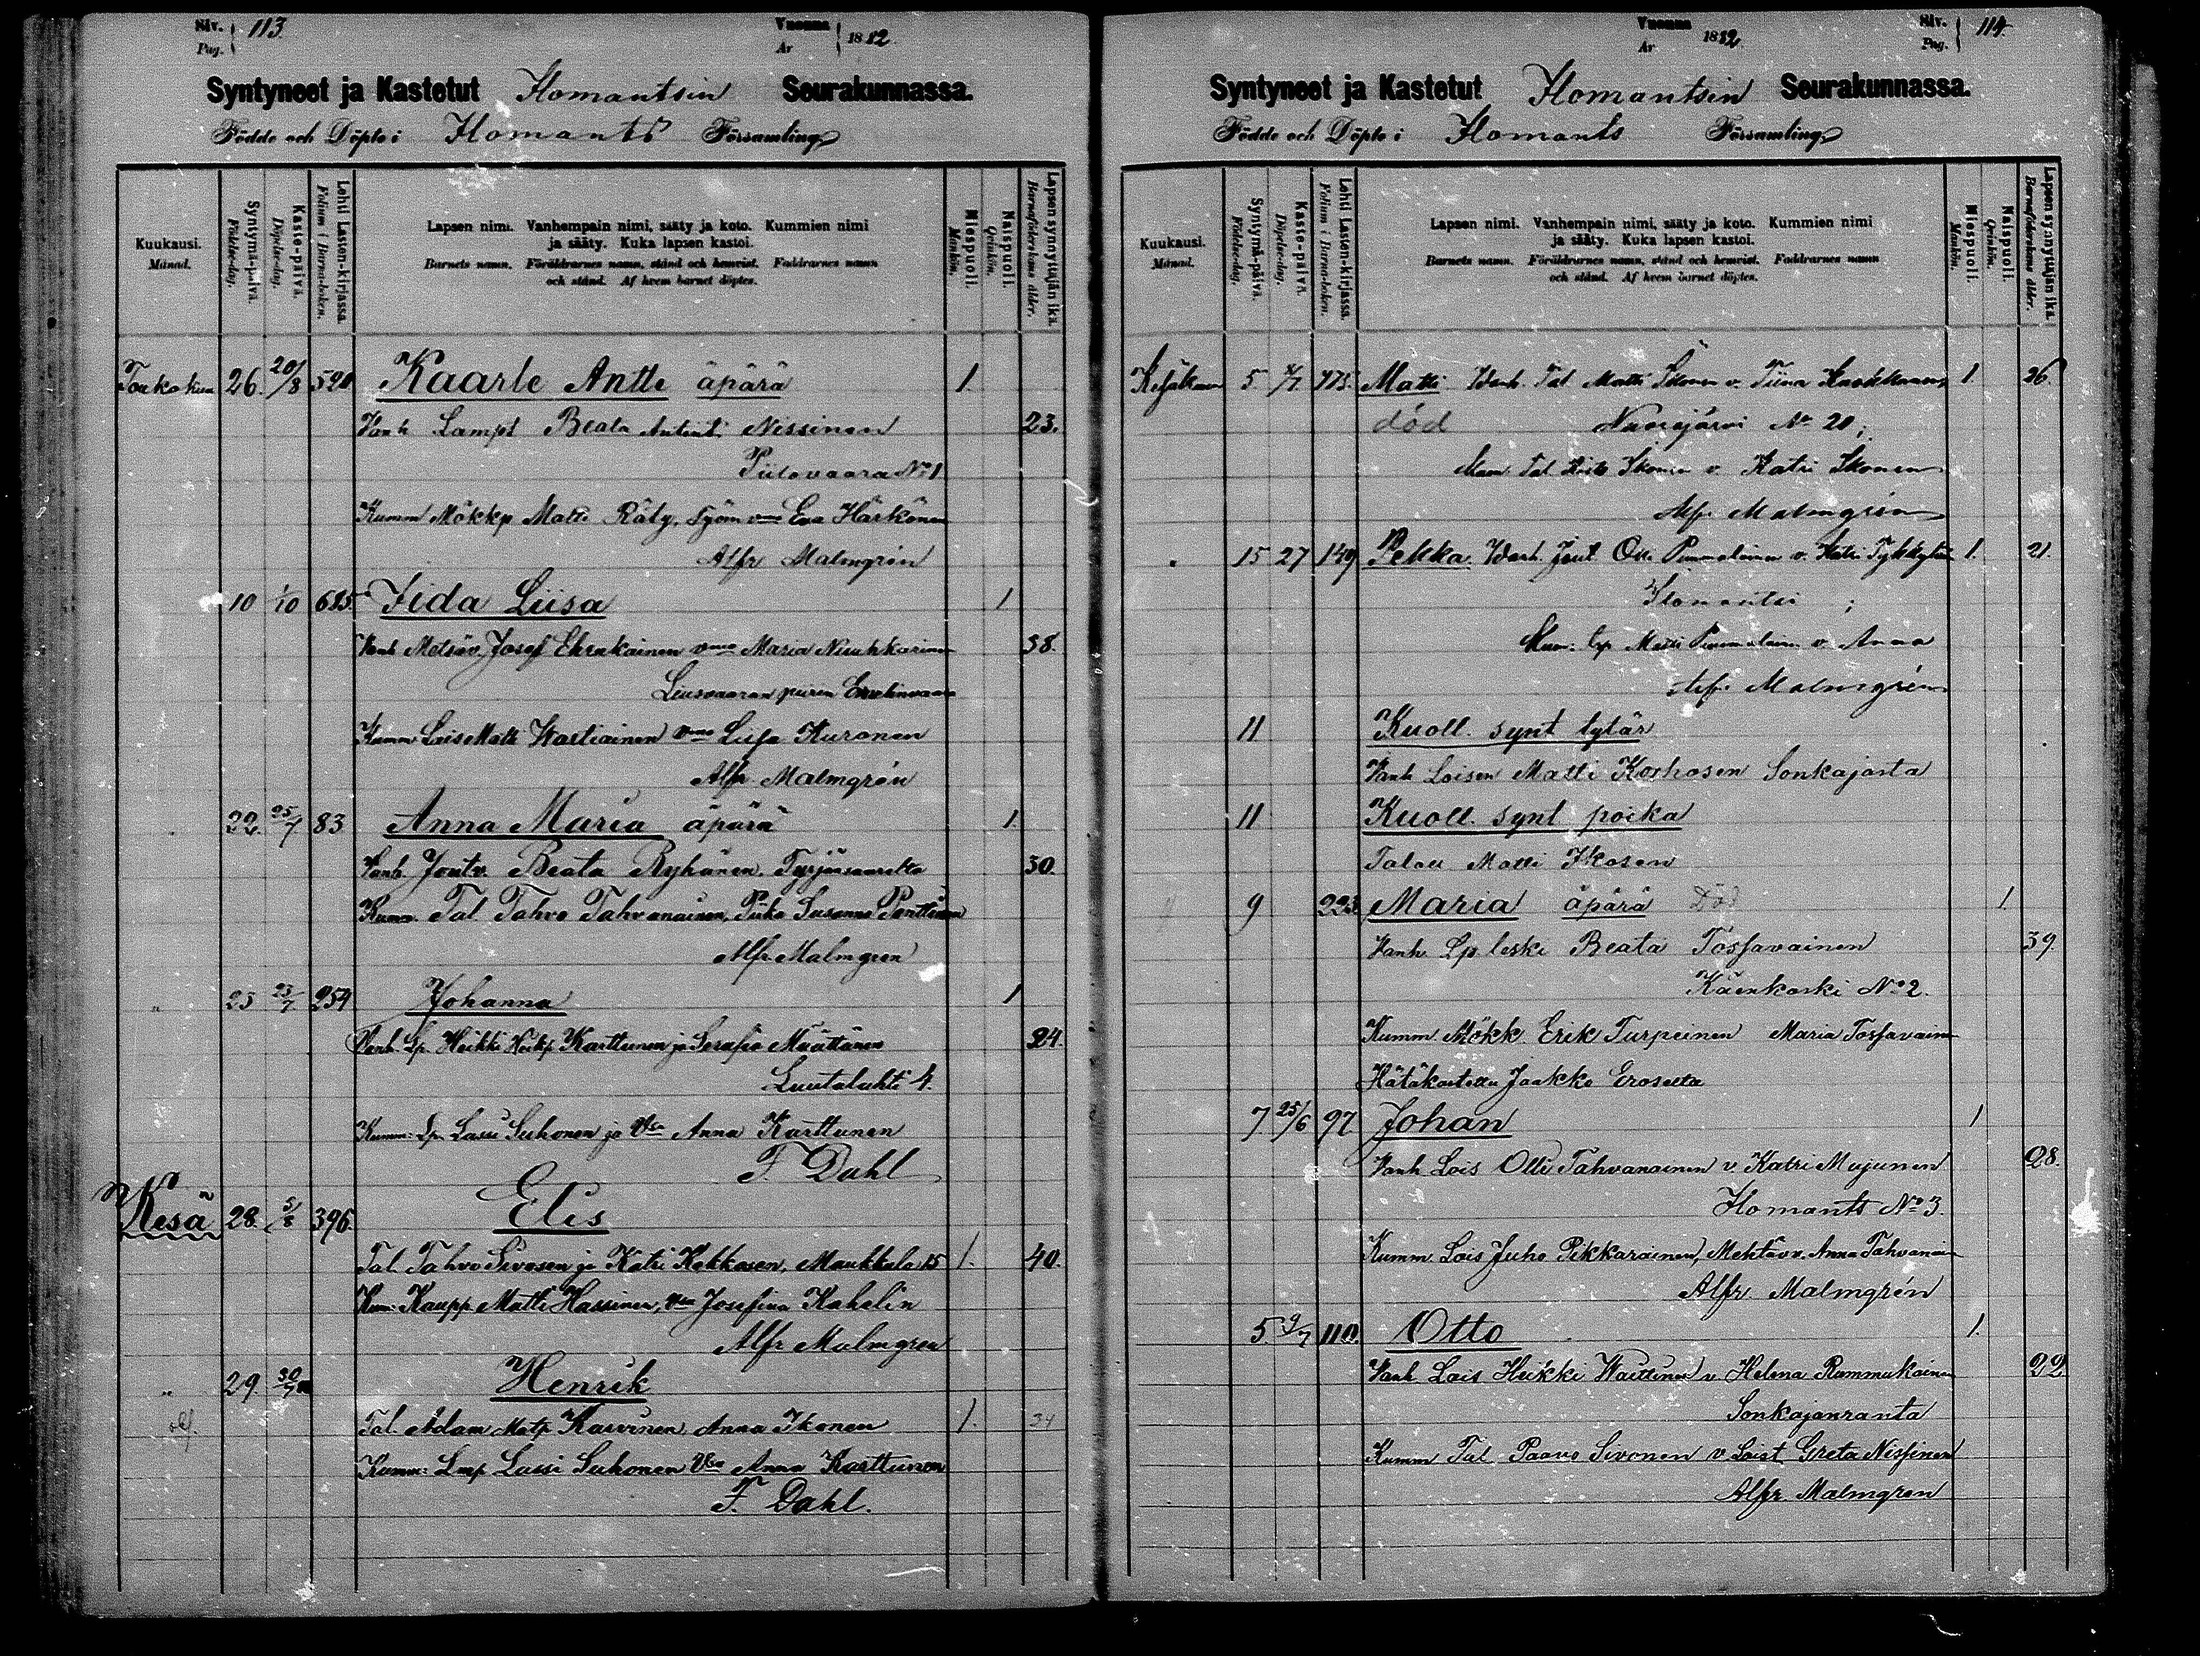 Siv. Pag. 113.
Vuonna År 1882.
Syntyneet ja Kastetut Ilomantsin Seurakunnassa.
Födde och Döpte i Ilomants Församling
Kuukausi. Månad.
Syntymä-päivä. Födelse-dag.
Kaste-päivä. Döpelse-dag.
Lehti Lasten-kirjassa. Folium i Barna-boken.
Lapsen nimi. Vanhempain nimi, sääty ja koto. Kummien nimi
ja sääty. Kuka lapsen kastoi.
Barnets namn. Föräldrarnes namn, stånd och hemvist. Faddrarnes namn
och stånd. Af hvem barnet döptes.
Miespuoli. Mankön.
Naispuoli. Qvinkön.
Lapsen synnyttäjän ikä. Barnaföderskans ålder.
Toukokuu 26. 20/8 520 Kaarle Antti äpärä 1.
Vanh Lampt Beata Nissinen 23.
Piilovaara No 1
Kumm Mökkp Matti Räty, Eva Härkönen
Alfr Malmgrén
10 1/10 685. Iida Liisa 1
Vanh Metsäv. Josef vmo Maria 38.
Liusvaaran
Kumm Lois Matti Wartiainen vmo Liisa Kuronen
Alfr Malmgrén
" 22. 25/7 83 Anna Maria äpärä 1.
Vanh. Joutv. Beata Ryhänen, 30.
Kumm. Tal. Tahvo Tahvanainen, Piika Susanna Penttinen
Alfr. Malmgren
" 25 23/7 254 Johanna 1
Vanh. Lp. Heikki Heikp Karttunen ja Serafia Määttänen 24.
Luutalahti 4.
Kumm: Lp. Lassi Suhonen ja Vsa Anna Karttunen
F. Dahl
Kesä 28. 5/8 396. Elis
Tal. Tahvo Sivosen ja Katri Kokkosen, Maukkula 15 1. 40.
Kum: Kaupp. Matti Hassinen, Vsa Josefina Kahelin
Alfr Malmgren
" 29. 30/7 Henrik
Tal. Adam Matp Karvinen, Anna Ikonen 1. 24
Kumm: Lmp Lassi Suhonen Vsa Anna Karttunen
F. Dahl.
Vuonna År 1882.
Siv. Pag. 114.
Syntyneet ja Kastetut Ilomantsin Seurakunnassa.
Födde och Döpte i Ilomants Församling
Kuukausi. Månad.
Syntymä-päivä. Födelse-dag.
Kaste-päivä. Döpelse-dag.
Lehti Lasten-kirjassa. Folium i Barna-boken.
Lapsen nimi. Vanhempain nimi, sääty ja koto. Kummien nimi
ja sääty. Kuka lapsen kastoi.
Barnets namn. Föräldrarnes namn, stånd och hemvist. Faddrarnes namn
och stånd. Af hvem barnet döptes.
Miespuoli. Mankön.
Naispuoli. Qvinkön.
Lapsen synnyttäjän ikä. Barnaföderskans ålder.
Kesäkuu 5 775. Matti Wanh. Tal Matti Ikonen v. Tiina 1. 26.
död Nuorajärvi No 20;
Tal. Ikonen v. Katri Ikonen
Alfr. Malmgrén
" 15 27 149 Pekka. Wanh. Otti v. Katri 1. 21.
Ilomantsi ;
Kum: Lp. Matti v. Anna
Alfr. Malmgrén
11 Kuoll. synt tytär
Vanh Loisen Matti Korhosen Sonkajasta
11 Kuoll. synt poika
Talou Matti Ikosen
" 9 223. Maria äpärä Död 1.
Vanh. Lp leski Beata Tossavainen 39.
Käenkoski No 2.
Kumm. Mökk. Erik Turpeinen Maria Tossavainen
Hätäkastettu Jaakko Eroselta
7 25/6 97 Johan 1
Vanh Lois Olli Tahvanainen v. Katri Mujunen 28.
Ilomants No 3.
Kumm. Lois Juho Pikkarainen, Anna Tahvanain
Alfr. Malmgrén
5. 9/7 110. Otto 1.
Vanh Lois Heikki Waittinen v Helena Rummukainen 22
Sonkajanranta
Kumm Tal Paavo Sivonen v. Loist Greta Nissinen
Alfr. Malmgren